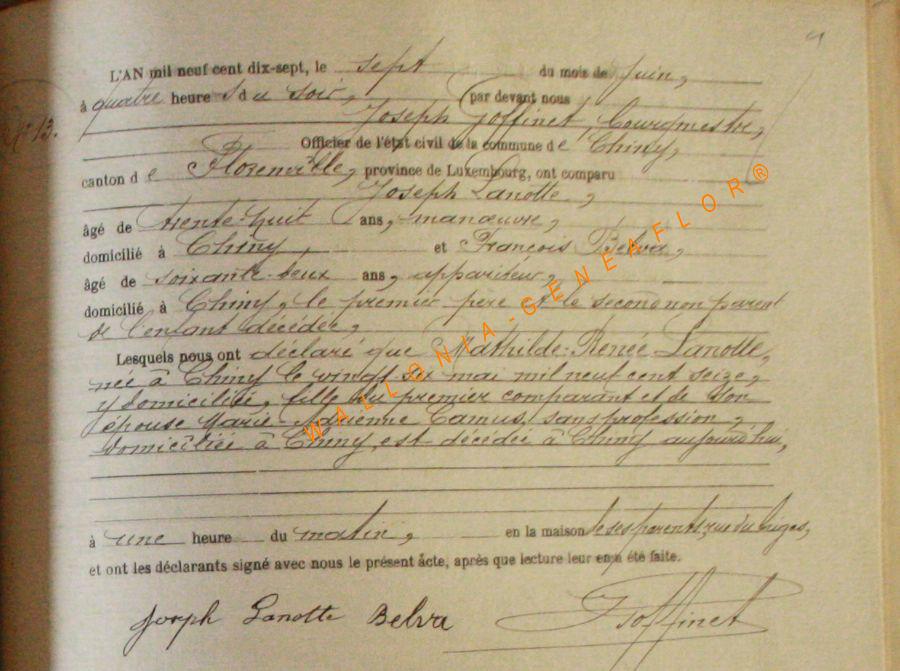 9
L'AN mil neuf cent dix-sept, le sept du mois de juin,
N° 13.
à quatre heures du soir, par devant nous
Joseph Goffinet, Bourgmestre,
Officier de l'état civil de la commune de Chiny,
canton de Florenville, province de Luxembourg, ont comparu
Joseph Lanotte,
âgé de trente-huit ans, manœuvre,
domicilié à Chiny, et François Belva,
âgé de soixante-deux ans, appariteur,
domicilié à Chiny, le premier père et le second non parent
de l'enfant décédée,
Lesquels nous ont déclaré que Mathilde-Renée Lanotte,
née à Chiny le vingt six mai mil neuf cent seize,
y domiciliée, fille du premier comparant et de son
épouse Marie Adrienne Camus, sans profession,
domiciliée à Chiny, est décédée à Chiny aujourd'hui,
à une heure du matin, en la maison de ses parents, rue du
et ont les déclarants signé avec nous le présent acte, après que lecture leur en a été faite.
Joseph Lanotte Belva JGoffinet
WALLONIA-GENEAFLOR®